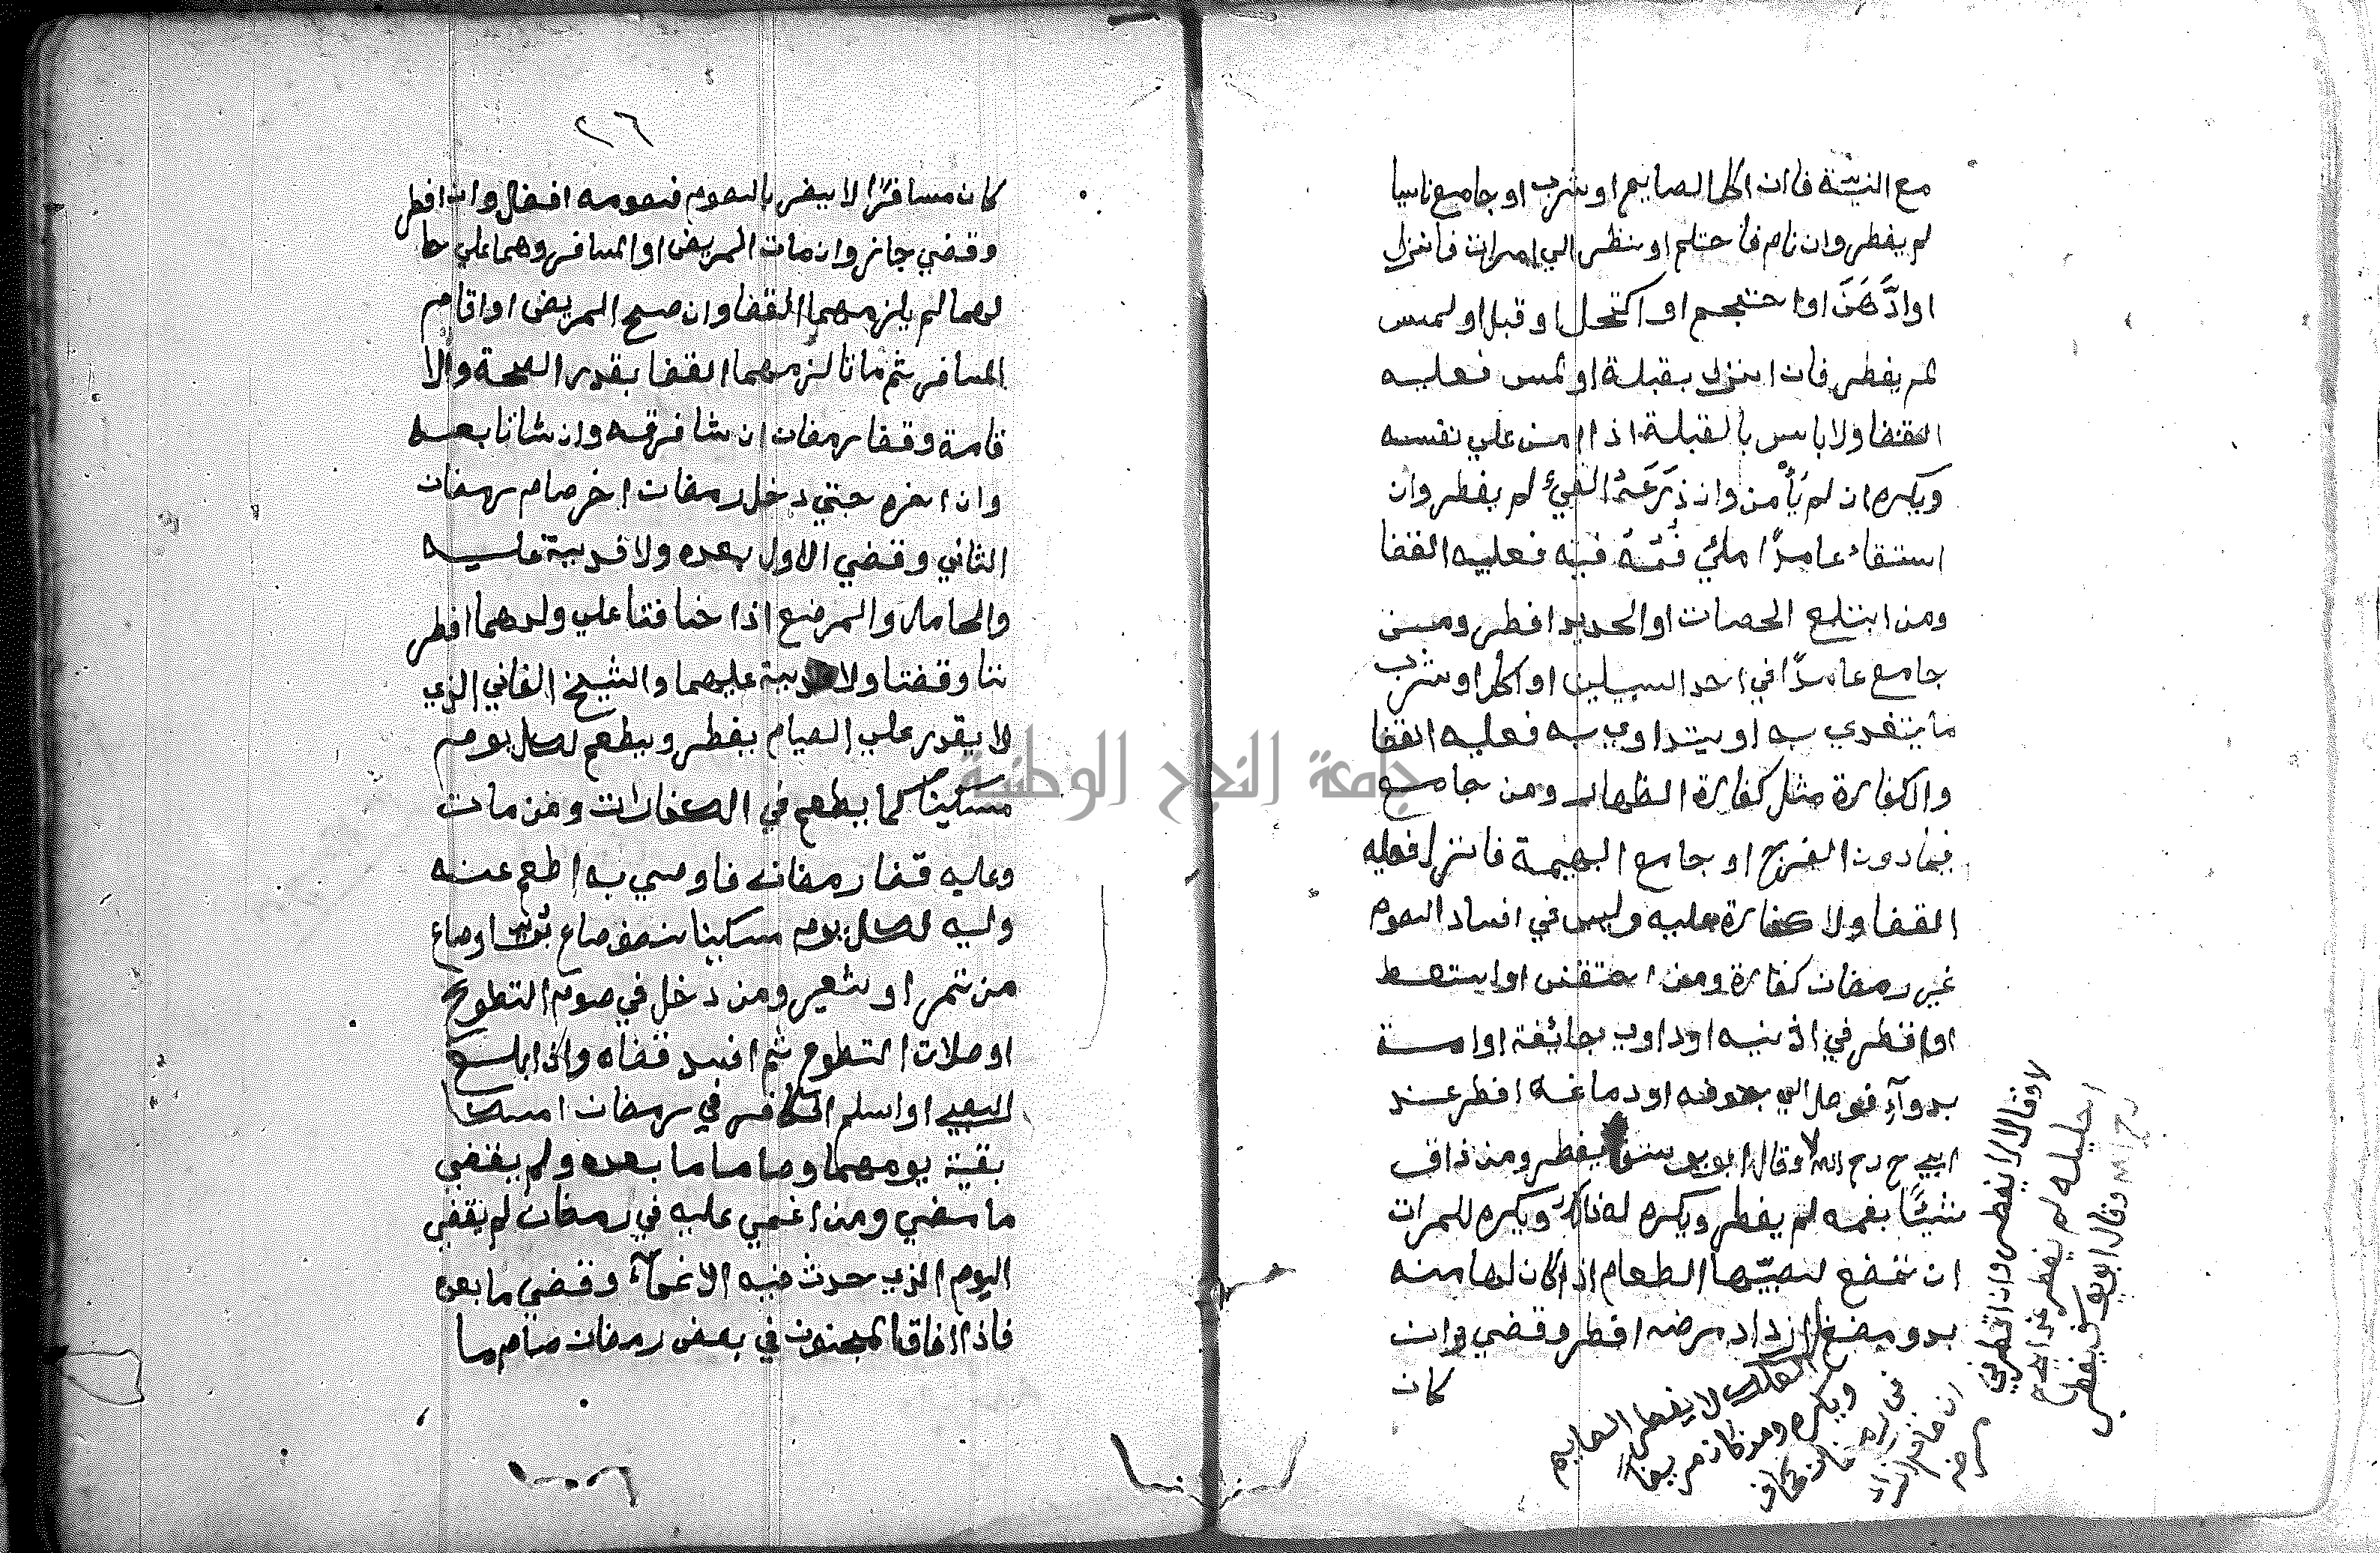 مع النيّة فاان اكل الصايم او شرب او جامع ناسيا
لم يفطر وان نام فأحتلم او نظر الي امرات فانزل
او ادَّهَنَ او احتجم او اكتحل او قبل او لمس
لم يفطر فان انزل بقبلة او لمس فعليه
القضا ولا باس بالقبلة اذا امن علي نفسه
ويكره ان لم يَأْمن وان ذَرَعَهُ القيءُ لم يفطر وان
استقاء عامدًا ملئ فمه فيه فعليه القضا
ومن ابتلع الحصات او الحديد افطر ومن
جامع عامدًا في احد السبيلين او اكل او شرب
ما يتغدي به او يتداوي به فعليه القضا
والكفارة مثل كفارة الظهار ومن جامع
فيما دون الفرج او جامع البهيمة فانزل فعليه
القضا ولا كفارة عليه وليس في افساد الصوم
غير رمضان كفارة ومن احتقن او استعط
او اقطر في اذنيه او داوي جائفة او امة
بدوآءٍ فوصل الي جوفه او دماغه افطر عند
ابي ح رح الله وقال ابو يوسف يفطر ومن ذاق
شيئًا بفمه لم يفطر ويكره له ذالك ويكره للمرات
ان تمضغ لصبيّها الطعام اذا كان لها منه
بد ومضغ ازداد مرضه افطر وقضي وان
كان
لا وقالا لا يفطر وان اقطر في
احليله لم يفطر عند ابي ح
رح الله وقال ابو يوسف يفطر
العلك لا يفطر الصايم
ويكره ومن كان مريضاً
في رمضان فخاف
ان صام ازداد
مرضه
٢٦
كان مسافرًا لا يضر بالصوم فصومه افضل وان افطر
وقضي جاز وان مات المريض او المسافر وهما علي حا
لهما لم يلزمهما القضا وان صح المريض او اقام
المسافر ثم ماتا لزمهما القضا بقدر الصحة والا
قامة وقضا رمضان ان شا فرقه وان شا تابعه
وان اخره حتي دخل رمضان اخر صام رمضان
الثاني وقضي الاول بعده ولا فدية عليه
والحامل والمرضع اذا خافتا علي ولدهما افطر
تا وقضتا ولا فدية عليهما والشيخ الفاني الذي
لا يقدر علي الصيام يفطر ويطعم لكل يوم
مسكينًا كما يطعم في الكفارات ومن مات
وعليه قضا رمضان فاوصي به اطعم عنه
وليه لكل يوم مسكينا نصف صاع او صاع
من تمر او شعير ومن دخل في صوم التطوع
او صلات التطوع ثم افسد قضاه واذا ابلغ
الصبي او اسلم الكافر في رمضان امسكا
بقية يومهما وصاما ما بعده ولم يقضي
ما مضي ومن اغمي عليه في رمضان لم يقضي
اليوم الذي حدث فيه الاغمآء وقضي ما بعده
فاذا افاق المجنون في بعض رمضان صام ما
جامعة النجاح الوطنية